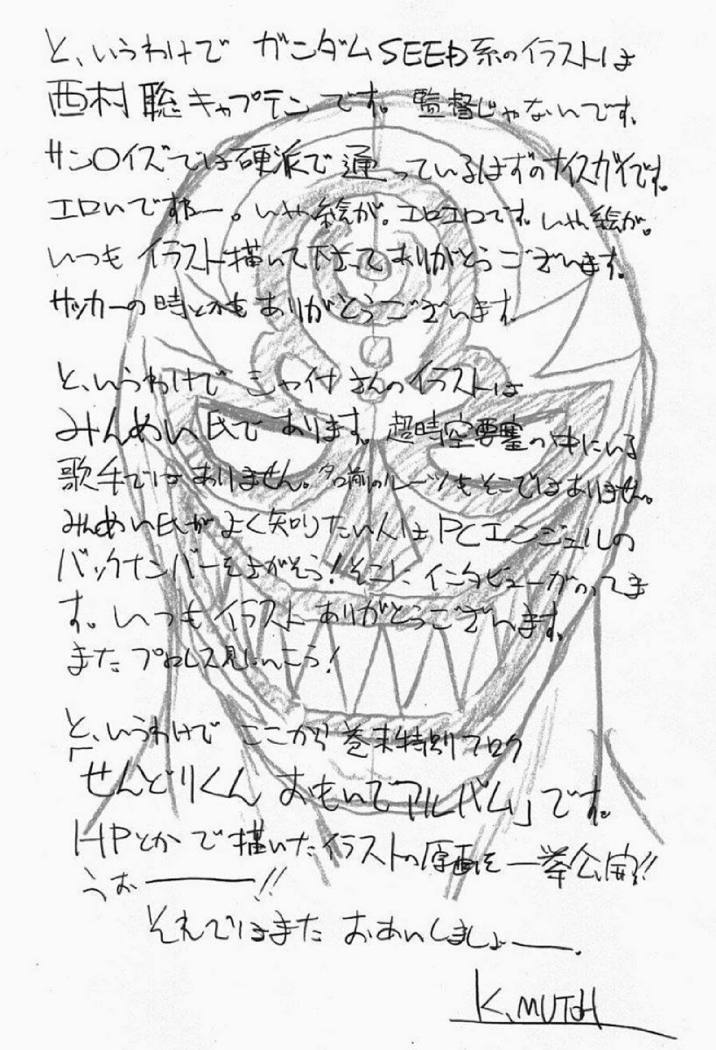 と、いうわけで ガンダムSEED系のイラストは
西村聡キャプテンです。監督じゃないです。
サン〇イズでは硬派で通っているはずのナイスガイです。
エロいですねー。いや絵が。エロエロです。いや絵が。
いつも イラスト描いて下さってありがとうございます。
サッカーの時とかも ありがとうございます。
と、いうわけで さんのイラストは
みんめい氏で あります。超時空要塞の中にいる
歌手ではありません。名前のルーツもそこではありません。
みんめい氏がよく知りたい人は PCエンジェルの
バックナンバーをさがそう!そこに、インタビューがのってま
す。いつも イラスト ありがとうございます。
また プロレス見にいこう!
と、いうわけで ここから 巻末特別フロク
「せんどりくん おもいでアルバム」です。
HPとかで描いたイラストの原画を一挙公開!!
うおーーー!!
それではまた おあいしましょーー.
K.MUTOH